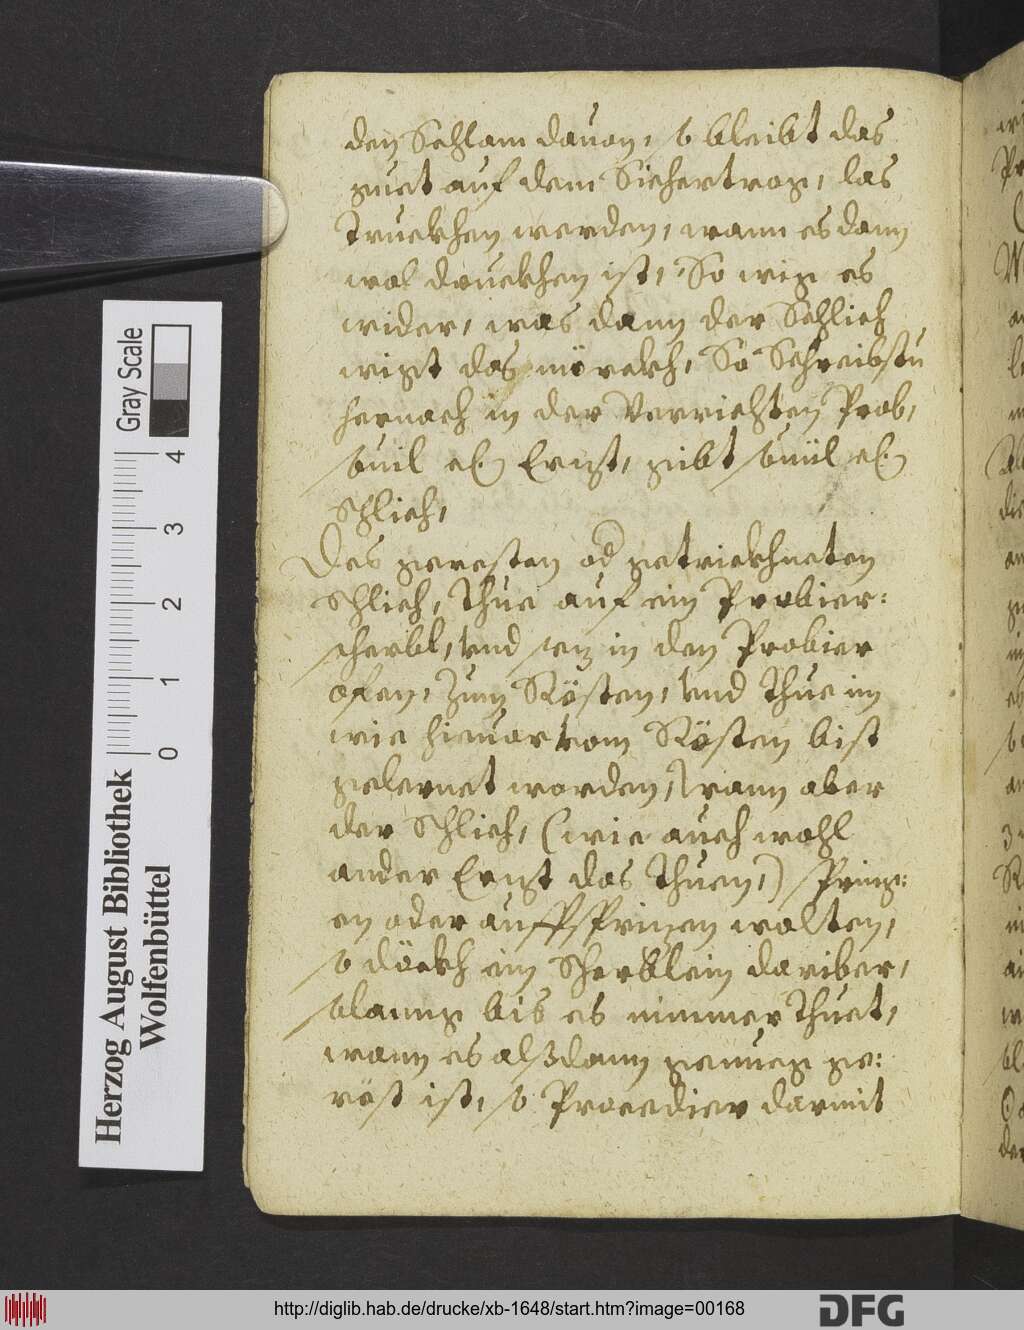 den Schlam dauon, so bleibt das
guet auf dem Sichertrog, las
Truckhen werden, wann es dann
wol druckhen ist, So wig es
wider, was dann der Schlich
wigt das mörckh, So Schreibstu
hernach in der Verrichten Prob,
souil Erzt, gibt souiil
Schlich,
Des geresten od getrickhneten
Schlich, Thue auf ein Probier:
scherbl, vnd sez in den Probier
ofen, Zum Rösten, vnd Thue im
wie hieuor vom Rösten bist
gelernet worden, wann aber
der Schlich, (wie auch wohl
ander Erzt das Thuen,) Spring:
en oder auffspringen wolten,
so döckh ein Scherblein dariber,
solanng bis es nimmer Thuet,
wann es alßdann genueg ge:
röst ist, so Procedier darmit
Gray Scale
0 1 2 3 4
Herzog August Bibliothek
Wolfenbüttel
http://diglib.hab.de/drucke/xb-1648/start.htm?image=00168
DFG